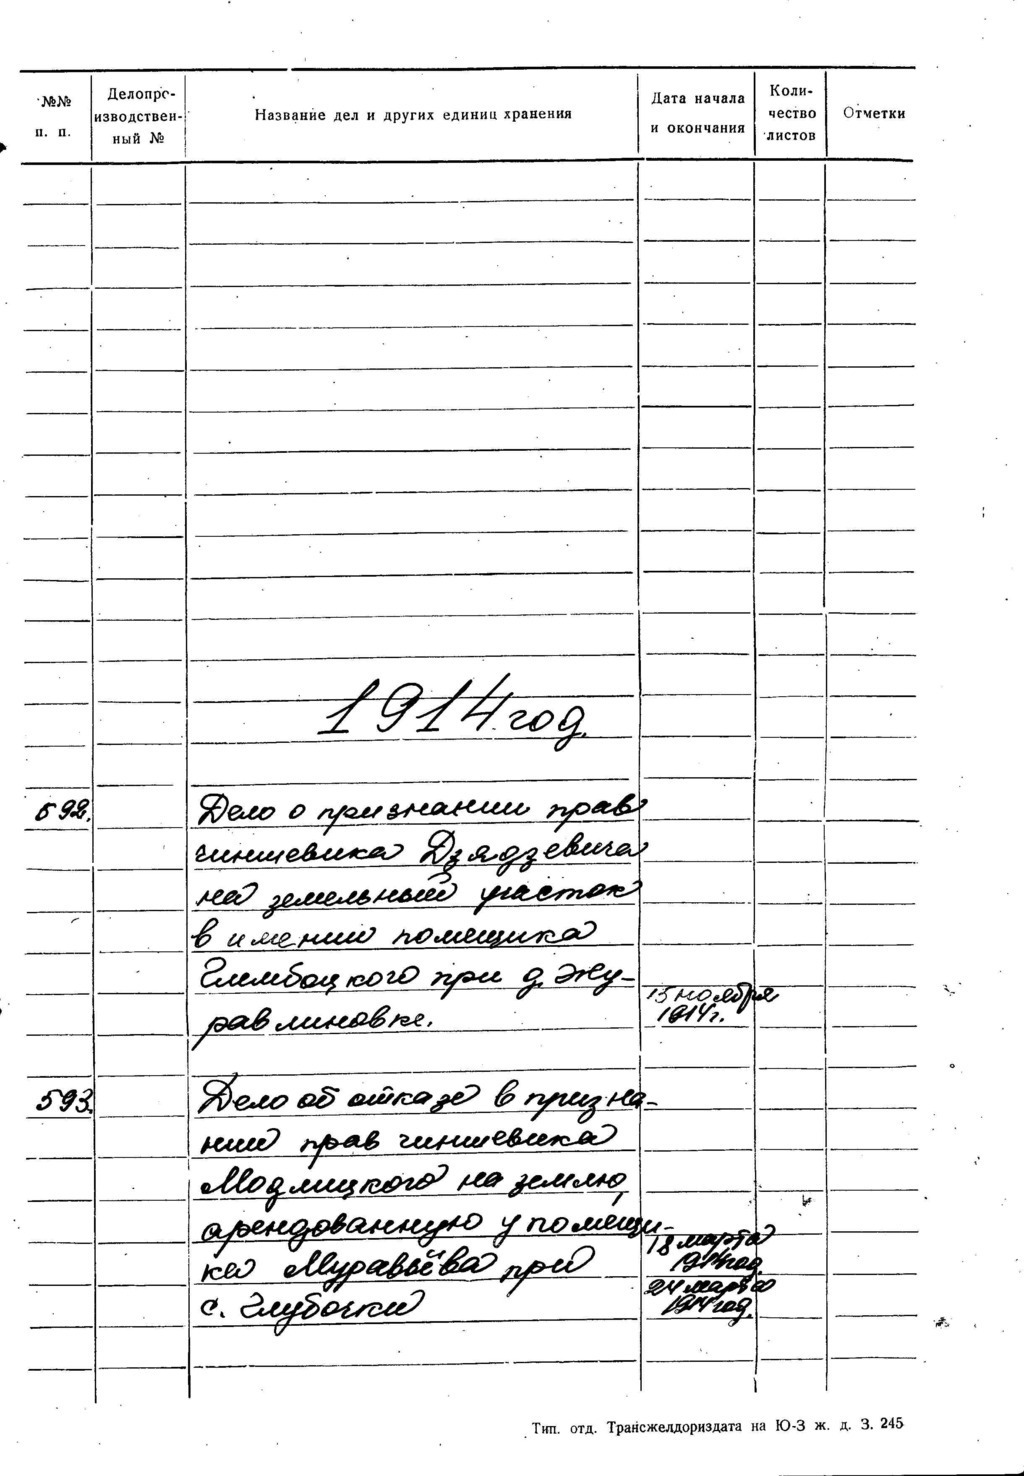 №№ п. п.
Делопро-
изводствен-
ный №
Название дел и других единиц хранения
Дата начала
и окончания
Коли-
чество
листов
Отметки
1914 год.
592.
Дело о признании прав
чиншевика Дзядзевича
на земельный участок
в имении помещика
Глембоцкого при д. Жу-
равлиновке.
15 ноября
1914 г.
593.
Дело об отказе в призна-
нии прав чиншевика
Модлицкого на землю,
арендованную у помещи-
ка Муравьёва при
с. Глубочки
18 марта
1914 год.
24 марта
1914 год.
Тип. отд. Трансжелдориздата на Ю-З ж. д. З. 245